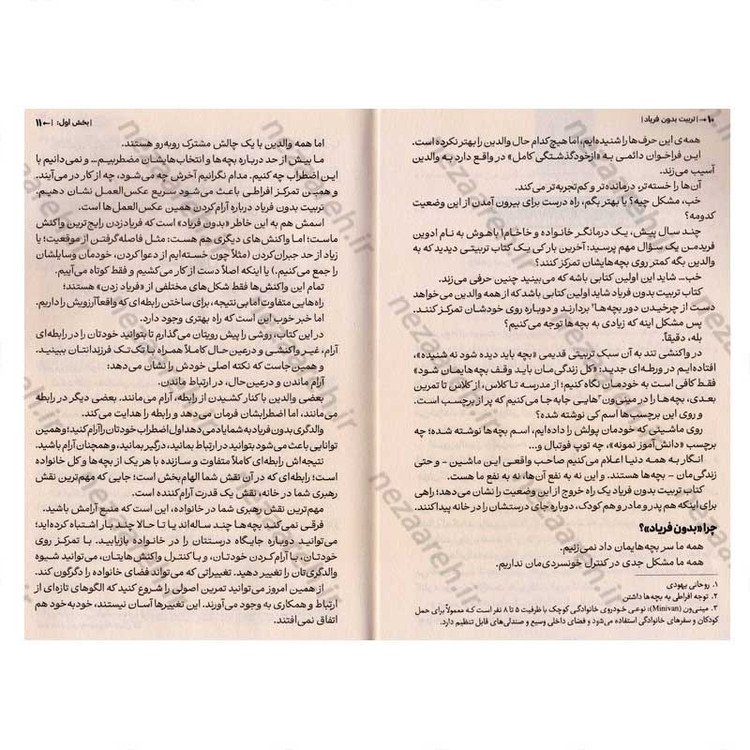 ۱۰ ← | تربیت بدون فریاد |
همه‌ی این حرف‌ها را شنیده‌ایم، اما هیچ کدام حال والدین را بهتر نکرده است.
این فراخوان دائمی به «ازخودگذشتگی کامل» در واقع دارد به والدین
آسیب می‌زند.
آن‌ها را خسته‌تر، درمانده‌تر و کم‌تجربه‌تر می‌کند.
خب، مشکل چیه؟ یا بهتر بگم، راه درست برای بیرون آمدن از این وضعیت
کدومه؟
چند سال پیش، یک درمانگر خانواده و خاخام۱ باهوش به نام ادوین
فریدمن یک سؤال مهم پرسید: آخرین بار کی یک کتاب تربیتی دیدید که به
والدین بگه کمتر روی بچه‌هایشان تمرکز کنند؟
خب... شاید این اولین کتابی باشه که می‌بینید چنین حرفی می‌زند.
کتاب تربیت بدون فریاد شاید اولین کتابی باشد که از همه والدین می‌خواهد
دست از چرخیدن دور بچه‌ها۲ بردارند و دوباره روی خودشان تمرکز کنند.
پس مشکل اینه که زیادی به بچه‌ها توجه می‌کنیم؟
بله، دقیقاً.
در واکنشی تند به آن سبک تربیتی قدیمی «بچه باید دیده شود نه شنیده»،
افتاده‌ایم در ورطه‌ای جدید: «کل زندگی‌مان باید وقف بچه‌هایمان شود»
فقط کافی است به خودمان نگاه کنیم؛ از مدرسه تا کلاس، از کلاس تا تمرین
بعدی، بچه‌ها را در مینی‌ون۳هایی جابه‌جا می‌کنیم که پر از برچسب است.
و روی این برچسب‌ها اسم کی نوشته شده؟
روی ماشینی که خودمان پولش را داده‌ایم، اسم بچه‌ها نوشته شده؛ چه
برچسب «دانش‌آموز نمونه»، چه توپ فوتبال و...
انگار به همه دنیا اعلام می‌کنیم صاحب واقعی این ماشین – و حتی
زندگی‌مان – بچه‌ها هستند. و این نه به نفع آن‌ها، نه به نفع ما هست.
کتاب تربیت بدون فریاد یک راه خروج از این وضعیت را نشان می‌دهد؛ راهی
برای اینکه هم پدر و مادر و هم کودک، دوباره جای درستشان را در خانه پیدا کنند.
چرا «بدون فریاد»؟
همه ما سر بچه‌هایمان داد نمی‌زنیم.
همه ما مشکل جدی در کنترل خونسردی‌مان نداریم.
۱. روحانی یهودی
۲. توجه افراطی به بچه‌ها داشتن
۳. مینی‌ون (Minivan): نوعی خودروی خانوادگی کوچک با ظرفیت ۵ تا ۸ نفر است که معمولاً برای حمل
کودکان و سفرهای خانوادگی استفاده می‌شود و فضای داخلی وسیع و صندلی‌های قابل تنظیم دارد.
| بخش اول: | → ۱۱
اما همه والدین با یک چالش مشترک روبه‌رو هستند.
ما بیش از حد درباره بچه‌ها و انتخاب‌هایشان مضطربیم – و نمی‌دانیم با
این اضطراب چه کنیم. مدام نگرانیم آخرش چه می‌شود، چه از کار در می‌آیند.
و همین تمرکز افراطی باعث می‌شود سریع عکس‌العمل نشان دهیم.
تربیت بدون فریاد درباره آرام کردن همین عکس‌العمل‌ها است.
اسمش هم به این خاطر «بدون فریاد» است که فریاد زدن رایج‌ترین واکنش
ماست؛ اما واکنش‌های دیگری هم هست: مثل فاصله گرفتن از موقعیت؛ یا
زیاد از حد جبران کردن (مثلاً چون خسته‌ایم از دعوا کردن، خودمان وسایلشان
را جمع می‌کنیم.) یا اینکه اصلاً دست از کار می‌کشیم و فقط کوتاه می‌آییم.
تمام این واکنش‌ها فقط شکل‌های مختلفی از «فریاد زدن» هستند؛
راه‌هایی متفاوت اما بی‌نتیجه، برای ساختن رابطه‌ای که واقعاً آرزویش را داریم.
اما خبر خوب این است که راه بهتری وجود دارد.
در این کتاب، روشی را پیش رویتان می‌گذارم تا بتوانید خودتان را در رابطه‌ای
آرام، غیر واکنشی و درعین حال کاملاً همراه با تک‌تک فرزندانتان ببینید.
و همین جاست که نکته اصلی خودش را نشان می‌دهد:
آرام ماندن و درعین حال، در ارتباط ماندن.
بعضی والدین با کنار کشیدن از رابطه، آرام می‌مانند. بعضی دیگر در رابطه
می‌مانند، اما اضطرابشان فرمان می‌دهد و رابطه را هدایت می‌کند.
والدگری بدون فریاد به شما یاد می‌دهد اول اضطراب خودتان را آرام کنید؛ و همین
توانایی باعث می‌شود بتوانید در ارتباط بمانید، درگیر بمانید، و همچنان آرام باشید.
نتیجه‌اش رابطه‌ای کاملاً متفاوت و سازنده با هر یک از بچه‌ها و کل خانواده
است؛ رابطه‌ای که در آن نقش شما الهام بخش است؛ جایی که مهم‌ترین نقش
رهبری شما در خانه، نقش یک قدرت آرام کننده است.
مهم‌ترین نقش رهبری شما در خانواده، این است که منبع آرامش باشید.
فرقی نمی‌کند بچه‌ها چند ساله‌اند یا تا حالا چند بار اشتباه کرده‌اید؛
می‌توانید دوباره جایگاه درستتان را در خانواده بازیابید. با تمرکز روی
خودتان، با آرام کردن خودتان، و با کنترل واکنش‌هایتان، می‌توانید شیوه
والدگری‌تان را تغییر دهید. تغییراتی که می‌تواند فضای خانواده را دگرگون کند.
از همین امروز می‌توانید تمرین اصولی را شروع کنید که الگوهای تازه‌ای از
ارتباط و همکاری به وجود می‌آورند. این تغییرها آسان نیستند، خود به خود هم
اتفاق نمی‌افتند.
nezaareh.ir